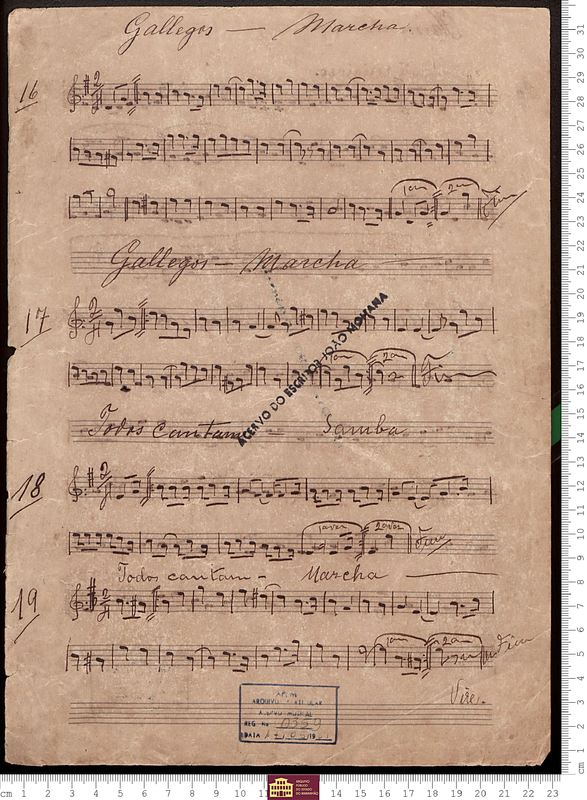 Gallegos — Marcha.
16
1a
2a
Gallegos — Marcha
17
1a 2a Fim
ACERVO DO ESCRITOR JOÃO MOHANA
Todos cantam — Samba
18
1a vez 2a vez Fim
Todos cantam — Marcha
19
1a 2a Fim
Vire.
REG No 0359
DATA
ARQUIVO PÚBLICO DO ESTADO DO MARANHÃO
cm 1 2 3 4 5 6 7 8 9 10 11 14 15 16 17 18 19 20 21 22 23
cm 1 2 3 4 5 6 7 8 9 10 11 12 13 14 15 16 17 18 19 20 21 22 23 24 25 26 27 28 29 30 31